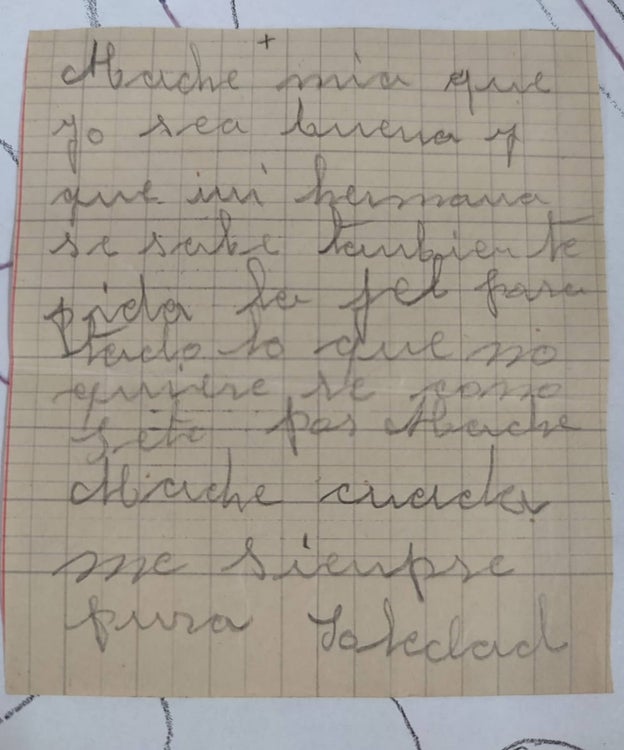 +
Mache mia que
yo sea buena y
que mi hermana
se sabe tambien te
pida la fel para
todo lo que no
quiere se como
por Mache
Mache cuada
me sienpre
pura Soledad